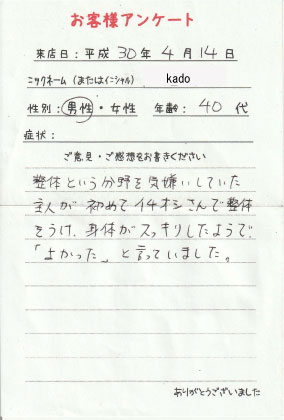 お客様アンケート
来店日：平成 30年 4月 14日
ニックネーム（またはイニシャル） kado
性別：男性・女性 年齢：40代
症状：
ご意見・ご感想をお書きください
整体という分野を気嫌いしていた
主人が初めてイチオシさんで整体
をうけ、身体がスッキリしたようで、
「よかった」と言っていました。
ありがとうございました